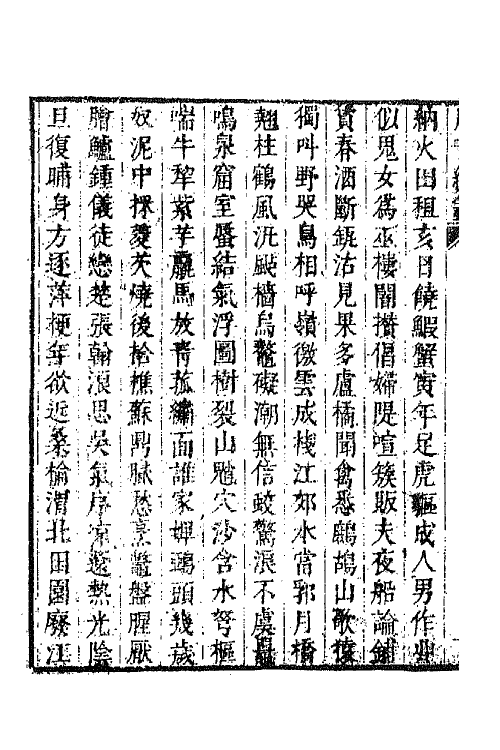 納火田租亥日饒鰕蟹寅年足虎貙成人男作丱
似鬼女為巫樓闇攢倡婦隄喧簇販夫夜船論鋪
賃春酒斷瓶沽見果多盧橘聞禽悉鷓鴣山歌猿
獨叫野哭鳥相呼嶺徼雲成棧江郊水當郛月橋
翹柱鶴風汎颭檣烏鼇礙潮無信蛟驚浪不虞鼉
鳴泉窟室蜃結氣浮圖樹裂山魈穴沙含水弩樞
喘牛犂紫芋羸馬放青菰繡面誰家婢鵶頭幾歲
奴泥中採菱芡燒後拾樵蘇鼎膩愁烹鼈盤腥厭
膾鱸鍾儀徒戀楚張翰浪思吳氣序涼還熱光陰
旦復晡身方逐萍梗年欲近桑榆渭北田園廢江